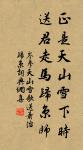 正是天山雪下時
送君走馬歸京師
岑參天山雪歌送蕭治
歸京詞典網書